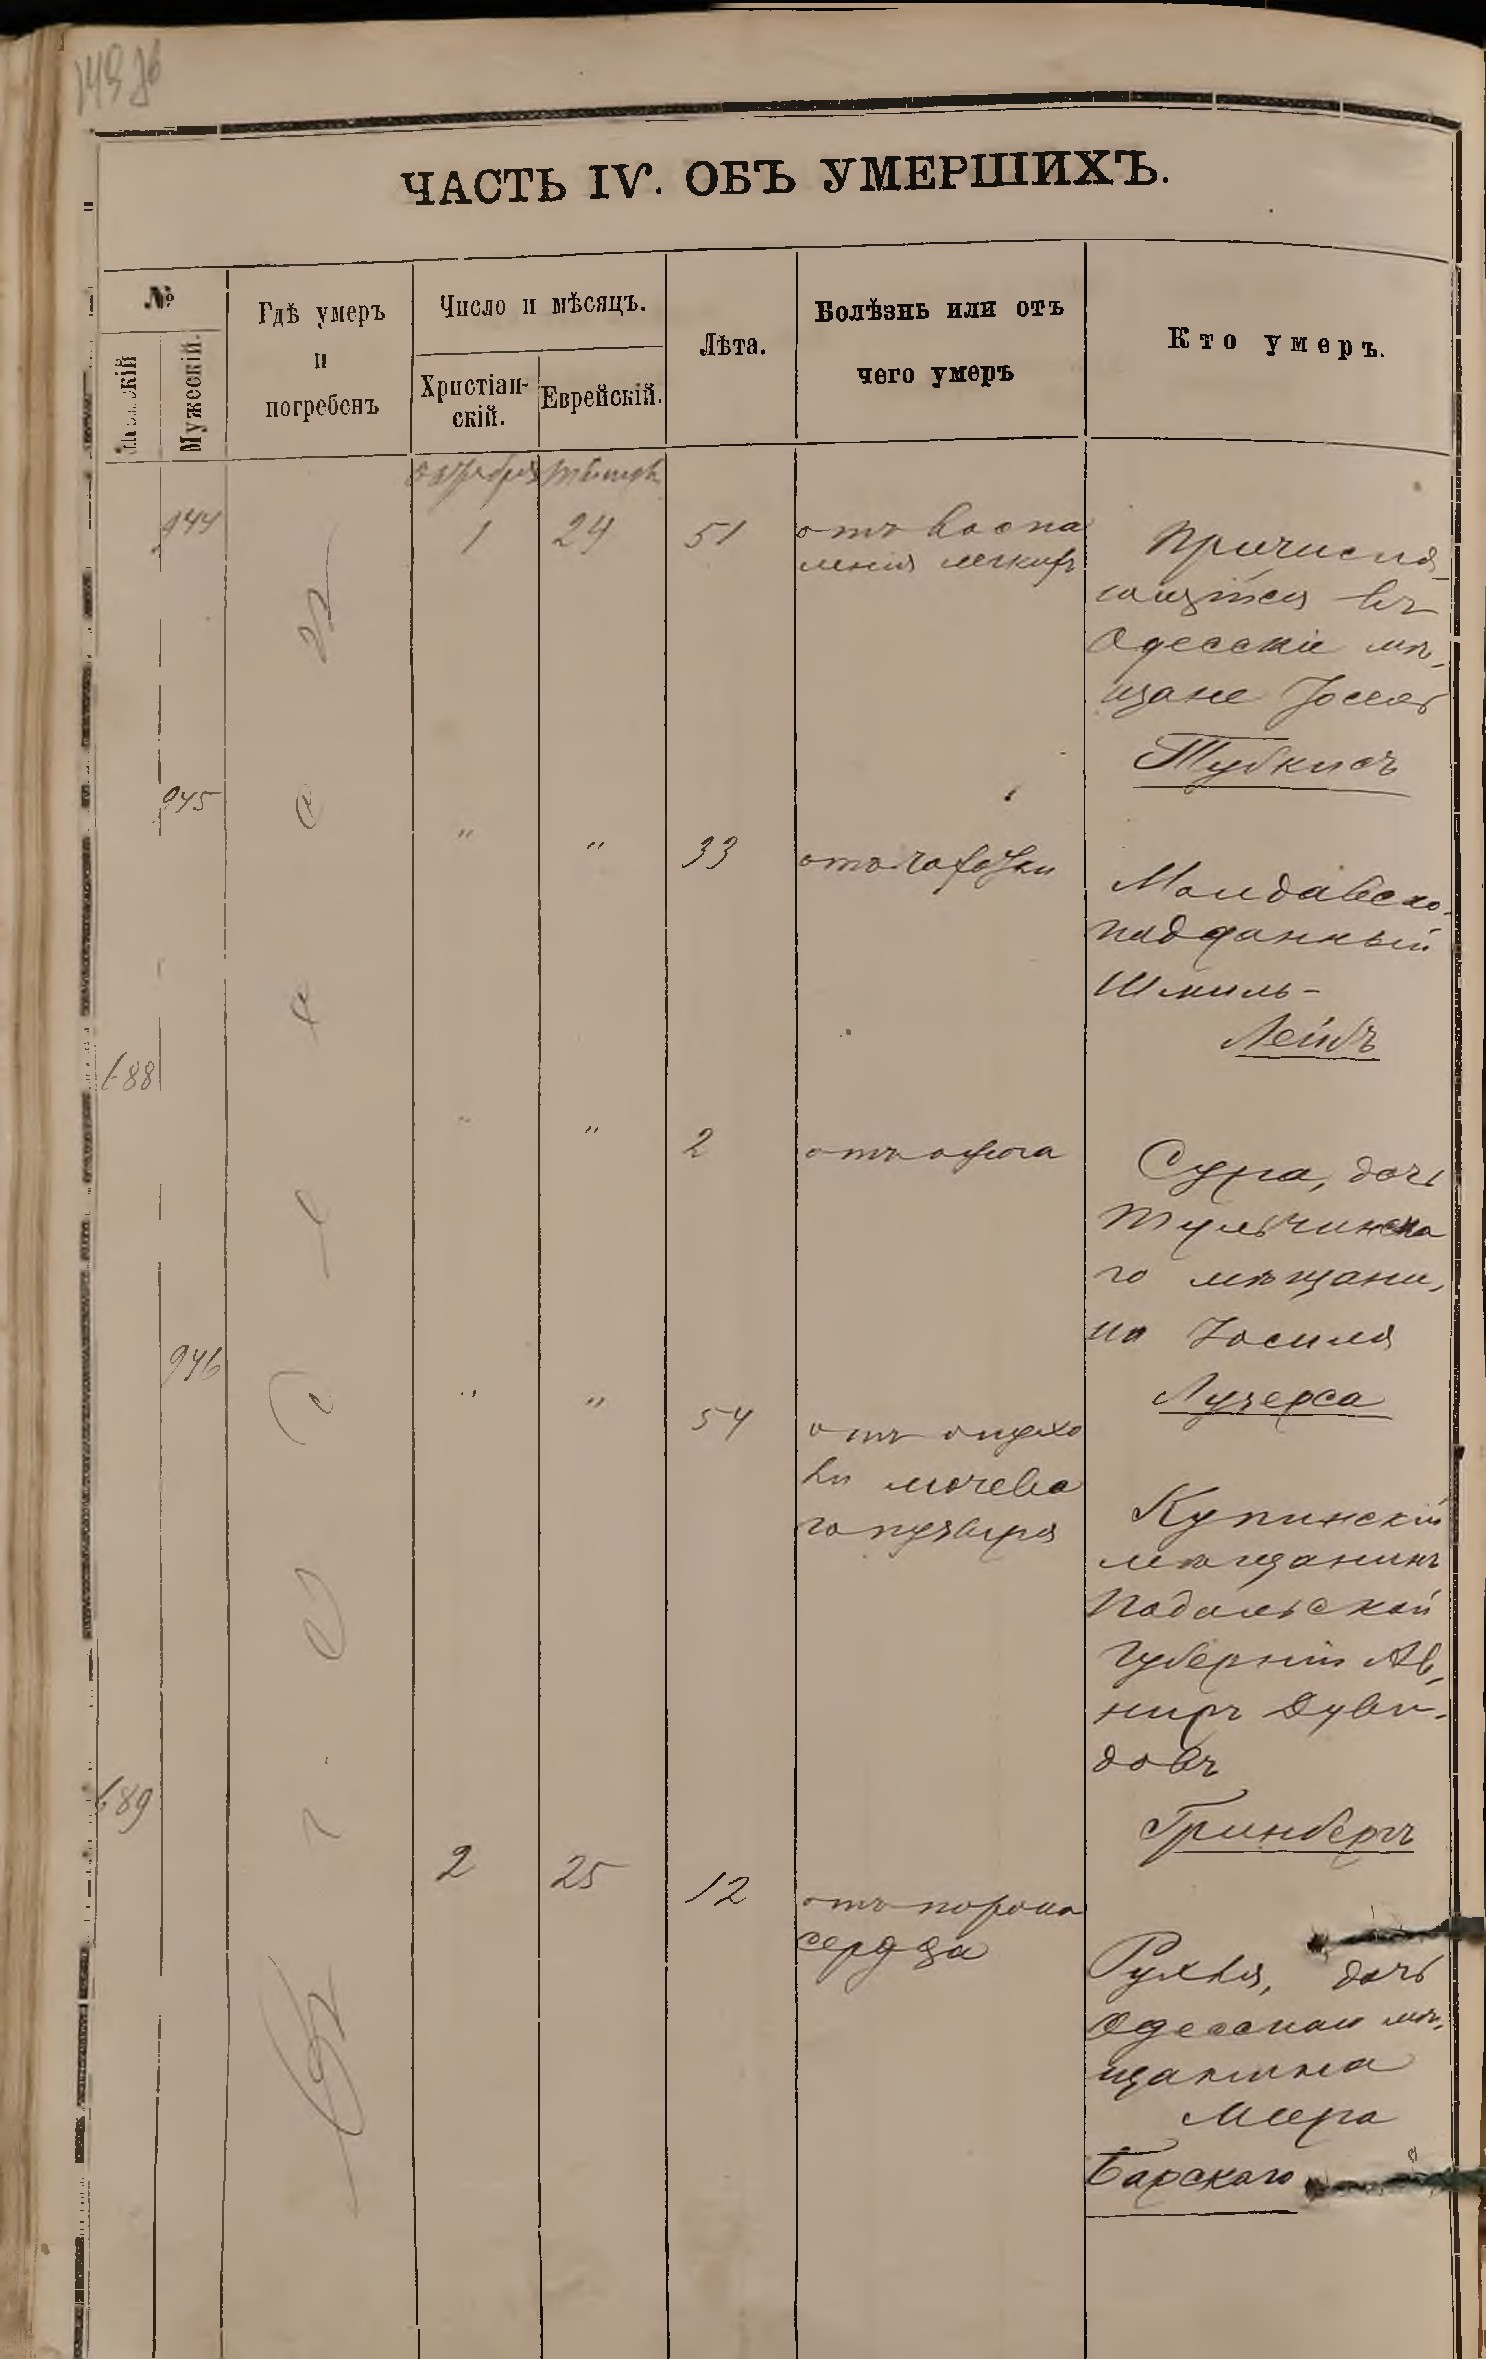 ЧАСТЬ IV. ОБЪ УМЕРШИХЪ.
№
Женскій
Мужескій.
Гдѣ умеръ
и
погребенъ
Число и мѣсяцъ.
Христіан-
скій.
Еврейскій.
Лѣта.
Болѣзнь или отъ
чего умеръ
Кто умеръ.
октября
944
1
24
51
отъ воспа
ленія легкихъ
Причисля
ющійся въ
Одесскіе мѣ,
щане Іосель
Тубкисъ
945
"
"
33
отъ чахотки
Молдавско-
подданный
Шмиль-
Лейбъ
688
"
"
2
отъ ожога
Сура, дочь
Тульчинска
го мѣщани,
на Іосиля
Лучерса
946
"
"
54
отъ опухо
ли мочева
го пузыря
Купинскій
мѣщанинъ
Подольской
губерніи Ав,
ниръ Дуви-
довъ
Гринбергъ
689
2
25
12
отъ порока
сердца
Рухля, дочь
Одесскаго мѣ,
щанина
Меера
Барскаго
въ Одессѣ